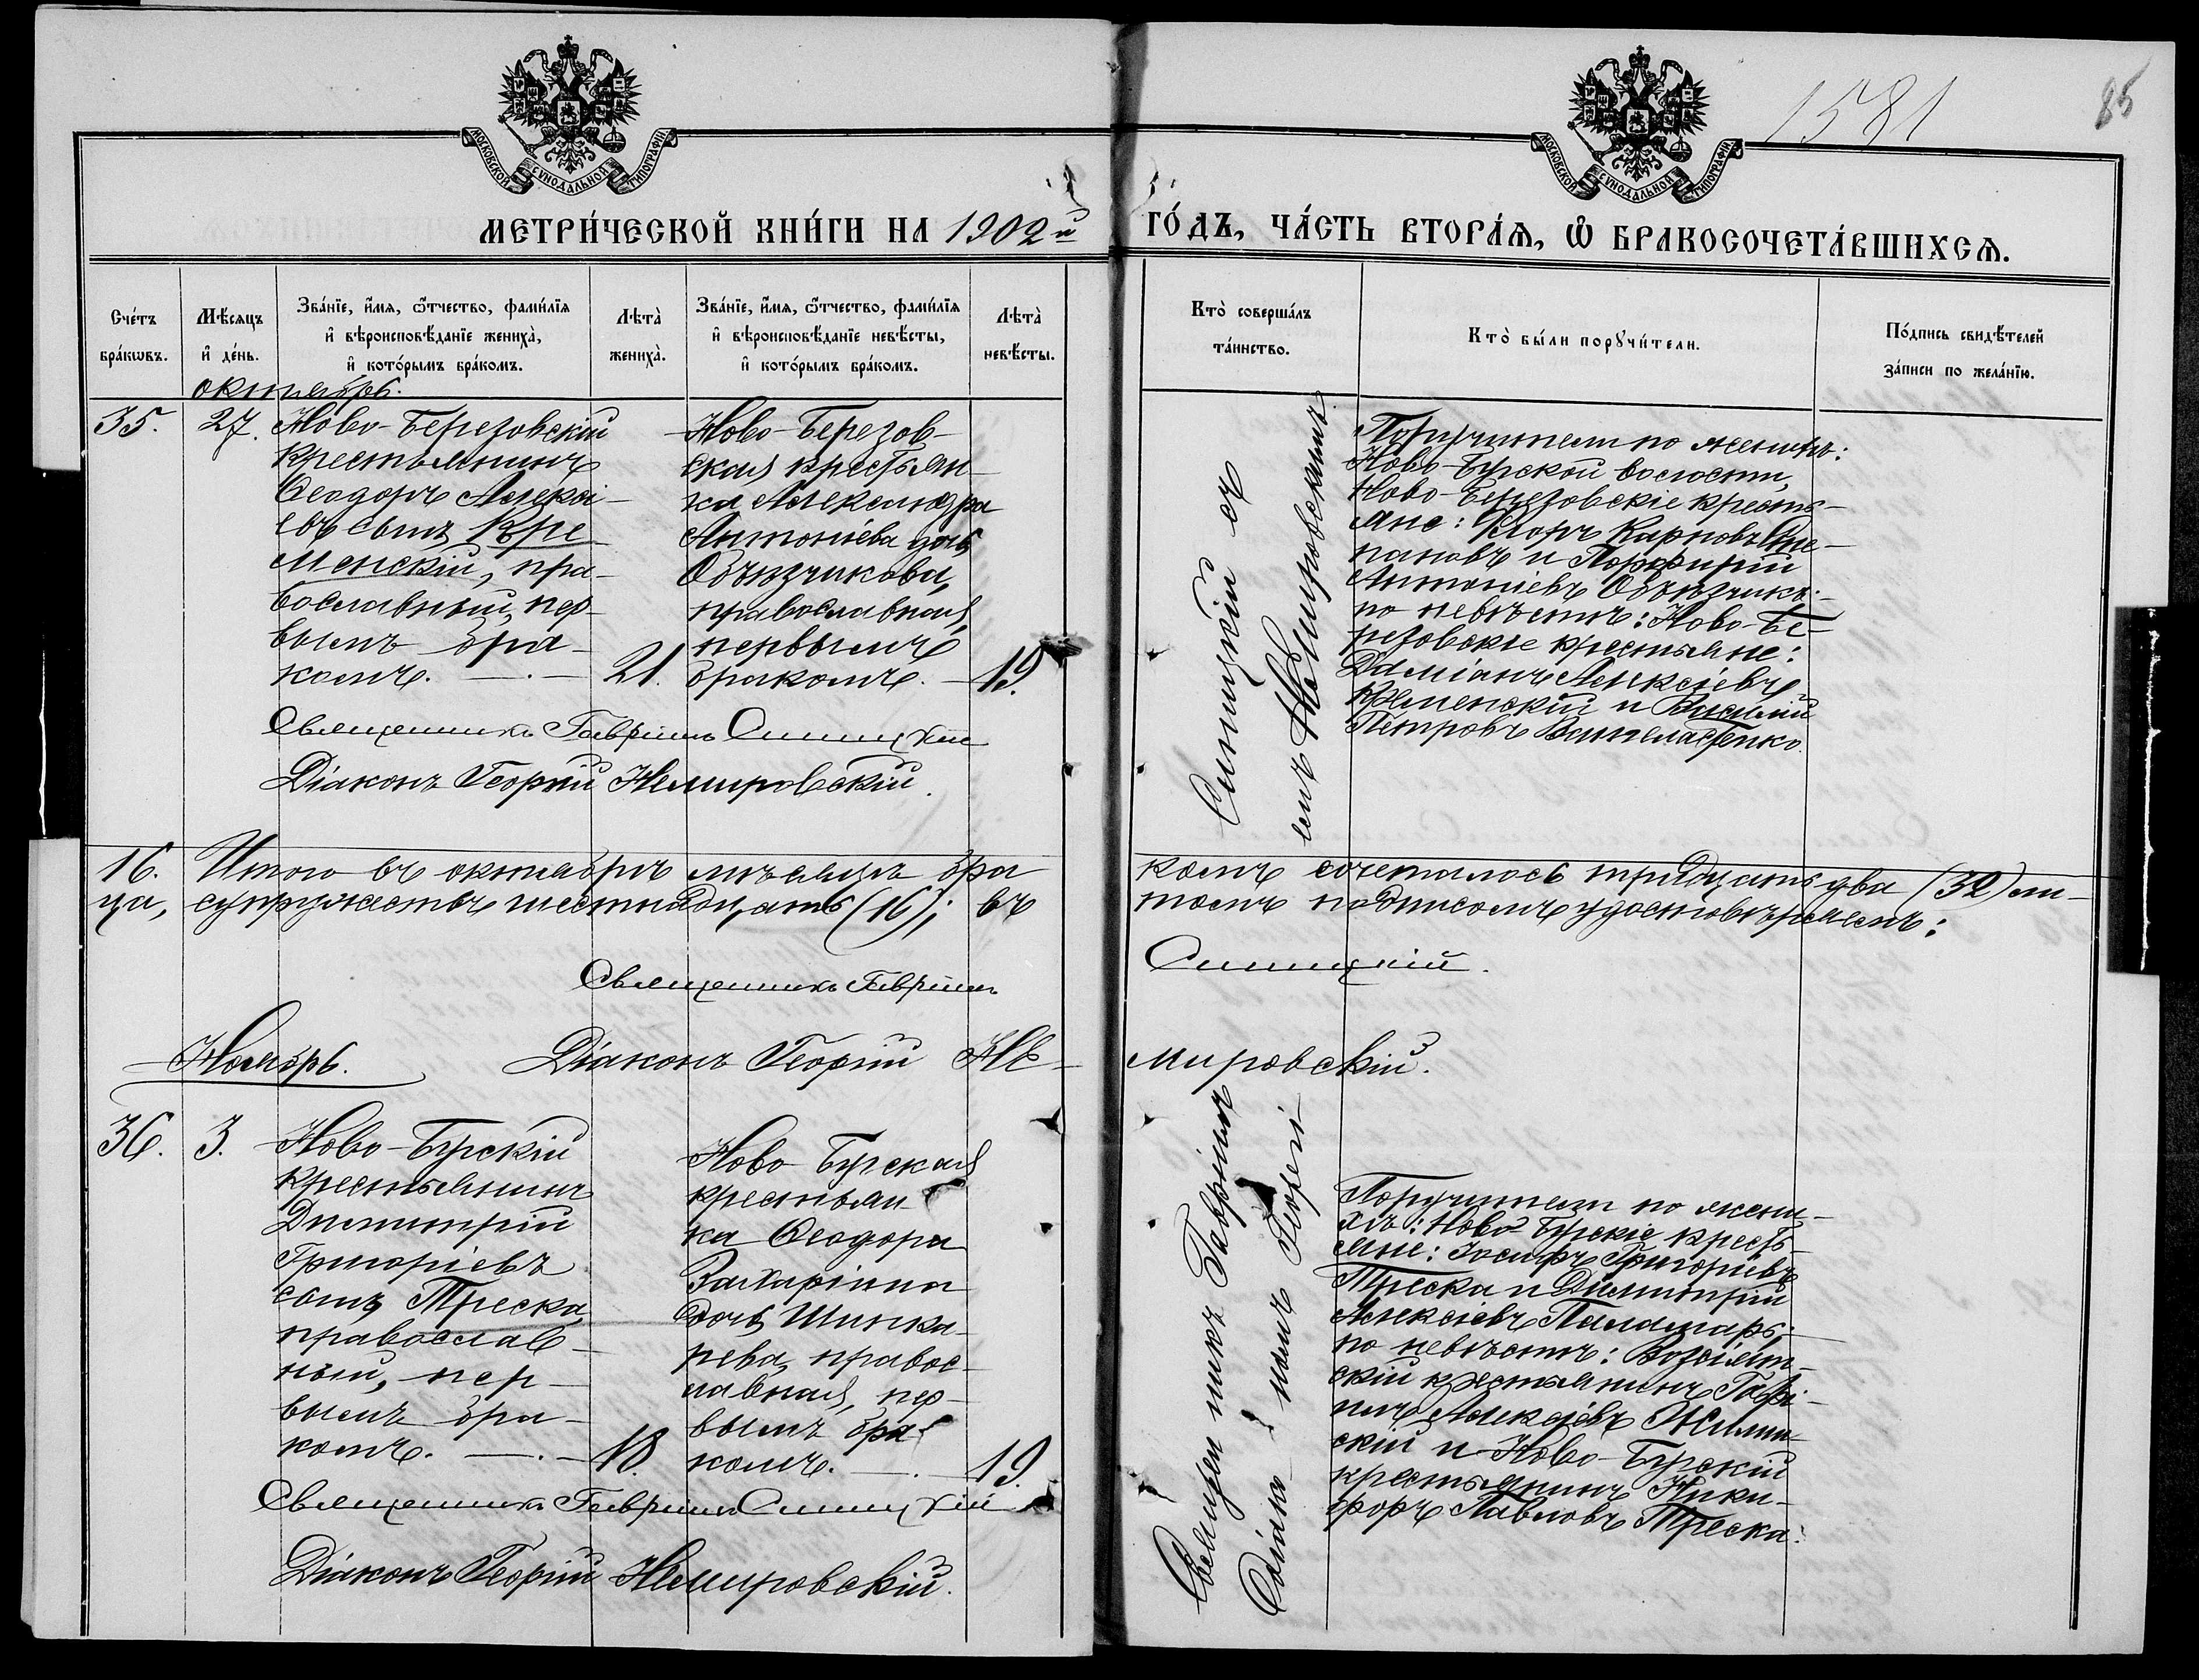 1581
85
МОСКОВСКОЙ СѴНОДАЛЬНОЙ ТИПОГРАФІИ
МОСКОВСКОЙ СѴНОДАЛЬНОЙ ТИПОГРАФІИ
МЕТРИ́ЧЕСКОЙ КНИ́ГИ НА 1902й ГО́ДЪ, ЧА́СТЬ ВТОРА́Ѧ, Ѽ БРАКОСОЧЕТА́ВШИХСѦ.
Сче́тъ
бра́кѡвъ.
Мѣ́сяцъ
и҆ де́нь.
Зва́нїе, и҆́мѧ, ѻ҆́тчество, фами́лїѧ
и҆ вѣроисповѣ́данїе жениха̀,
и҆ кото́рымъ бра́комъ.
Лѣта̀
жениха̀.
Зва́нїе, и҆́мѧ, ѻ҆́тчество, фами́лїѧ
и҆ вѣроисповѣ́данїе невѣ́сты,
и҆ кото́рымъ бра́комъ.
Лѣта̀
невѣ́сты.
Кто̀ соверша́лъ
та́инство.
Кто̀ бы́ли порꙋчи́тели.
По́дпись свидѣ́телей
за́писи по жела́нїю.
октябрь.
35.
27.
Ново-Березовскій
крестьянинъ
Ѳеодоръ Алексі-
евъ сынъ Кре-
менскій, пра-
вославный, пер-
вымъ бра-
комъ. —.—
21.
Ново-Березов-
ская крестьян-
ка Александра
Антоніева дочь
Объѣзчикова,
православная,
первымъ
бракомъ. —
19.
Синицкій съ
Немировскимъ.
Поручители по женихѣ:
Ново-Бурской волости,
Ново-Березовскіе кресть-
яне: Карповъ Сте-
пановъ и Порфирій
Антоніевъ Объѣзчикъ;
по невѣстѣ: Ново-Бе-
резовскіе крестьяне:
Даміанъ Алексіевъ
Кременскій и Василій
Петровъ
Священникъ Гавріилъ Синицкій
Діаконъ Георгій Немировскій.
16. Итого въ октябрѣ мѣсяцѣ бра комъ сочеталось тридцать два (32) ли-
ца, супружествъ шестнадцать (16); въ томъ подписомъ удостовѣряемъ:
Священникъ Гавріилъ Синицкій.
Ноябрь.
Діаконъ Георгій Не- мировскій.
36.
3.
Ново-Бурскій
крестьянинъ
Димитрій
Григоріевъ
сынъ Треска,
православ-
ный, пер-
вымъ бра-
комъ. —.—
18.
Ново-Бурская
крестьян-
ка Ѳеодора
Захаріина
дочь Шинка-
рева, правос-
лавная, пер-
вымъ бра-
комъ. —.—
19.
Священникъ Гавріилъ
Діаконъ Георгі-
Поручители по жени-
хѣ: Ново-Бурскіе кресть-
яне: Іосифъ Григоріевъ
Треска и Димитрій
Алексіевъ Паламарь;
по невѣстѣ: Возсіят-
скій крестьянинъ Гаврі-
илъ Алексіевъ Жилин-
скій и Ново-Бурскій
крестьянинъ Ники-
форъ Павловъ Треска.
Священникъ Гавріилъ Синицкій
Діаконъ Георгій Немировскій.